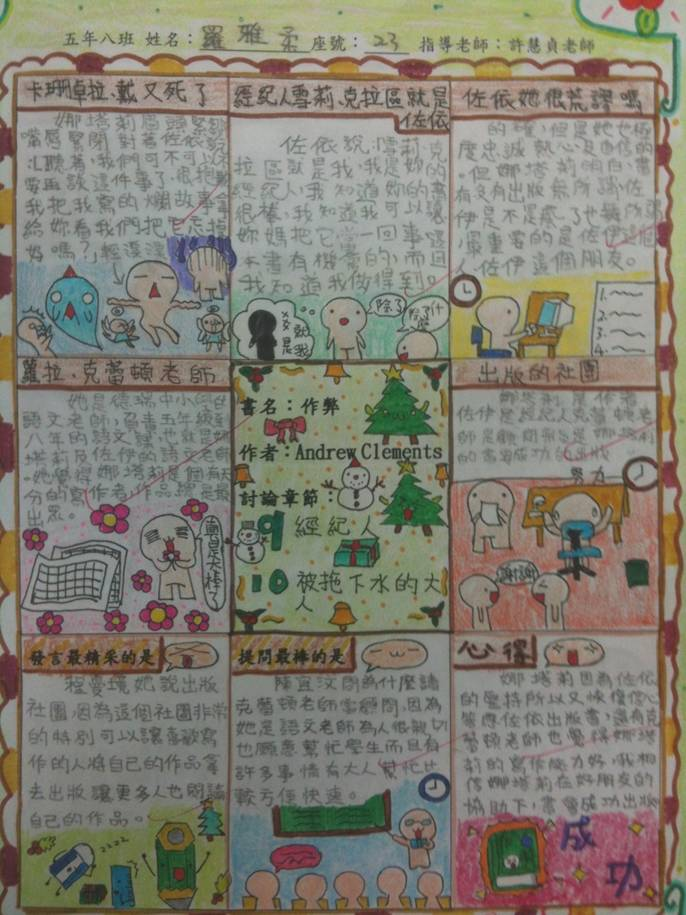 五年八班 姓名：羅雅柔 座號：23 指導老師：許慧貞老師
卡珊卓拉.戴又死了
娜塔莉眉頭緊鎖
嘴唇緊閉 對著佐依說
要再談這件事了.很抱歉
我把我寫的爛故事拿
給妳看我們把它忘掉
好嗎？
經紀人雪莉.克拉區就是
佐依
佐依說：雪莉.克
拉區就是我，我是妳的
經紀人，我知道妳的書
很棒，我知道我可以讓
妳媽把它當一回事這
本書有機會的，而且
我知道我做得到。
除了
佐依她很荒謬嗎
的確，但是她也極
度忠誠.熱心.及自信的
。但娜塔莉明白，書
有沒有出版無所謂.佐
伊是不是瘋了也無所謂
，最重要的是佐伊這個
人.佐伊這個朋友。
1.
2.
3.
4.
蘿拉.克蕾頓老師
她是德瑞中小學的
語文老師，負責五年級到
八年的語文課，也就是娜
塔莉及佐伊的語文老師
。她覺得娜塔莉是個有天
分的寫作者，作品總是最
出眾。
真是太棒了
書名：作弊
作者：Andrew Clements
討論章節：
9 經紀人
10 被拖下水的大
人
出版的社團
娜塔莉是作者
佐伊是經紀人克蕾頓老
師是顧問
的書能成功的出版
努力
謝謝
發言最精采的是
程愛境她說出版
社團，因為這個社團非常
的特別可以讓喜歡寫
作的人將自己的作品拿
去出版 讓更多人也閱讀
自己的作品。
提問最棒的是
陳宜汶問為什麼請
克蕾頓老師當顧問，因為
她是語文老師為人很親切
也願意幫忙學生而且有
許多事情有大人幫忙比
較方便快速。
心得
娜塔莉因為佐依
的堅持所以又恢復信心
答應佐依出版書，還有克
蕾頓老師也覺得娜塔
莉的寫作能力好，我相
信娜塔莉在好朋友的
協助下，書會成功出版
成
功